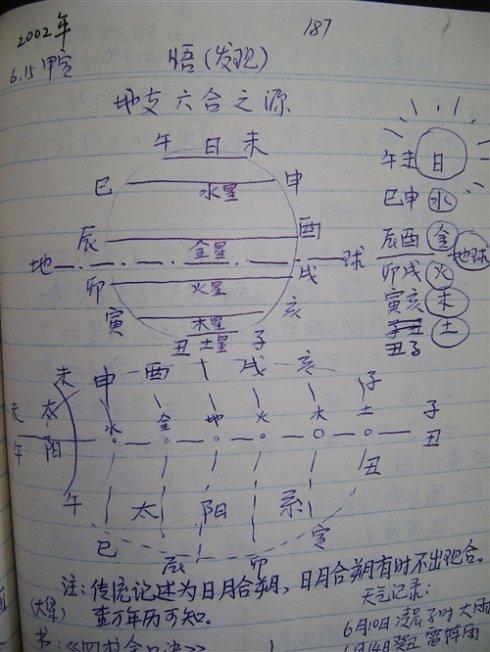 2002年
187
6.15 甲寅
悟(发现)
地支六合之源
午 日 未
巳 水星 申
辰 金星 酉
地 球
卯 火星 戌
寅 木星 亥
丑 土星 子
午未 日
巳申 水
辰酉 金
地球
卯戌 火
寅亥 木
丑子 土
未 申 酉 戌 亥 子
未 太 水 金 地 火 木 土 子
午 阳 丑
午 太 阳 系 丑
巳 辰 卯 寅
注:传统记述为日月合朔,日月合朔有时不出现合。
查万年历可知。
天气记录:
6月10日凌晨子时大雨
6月14癸丑 雷阵雨
书:《四书金口诀》